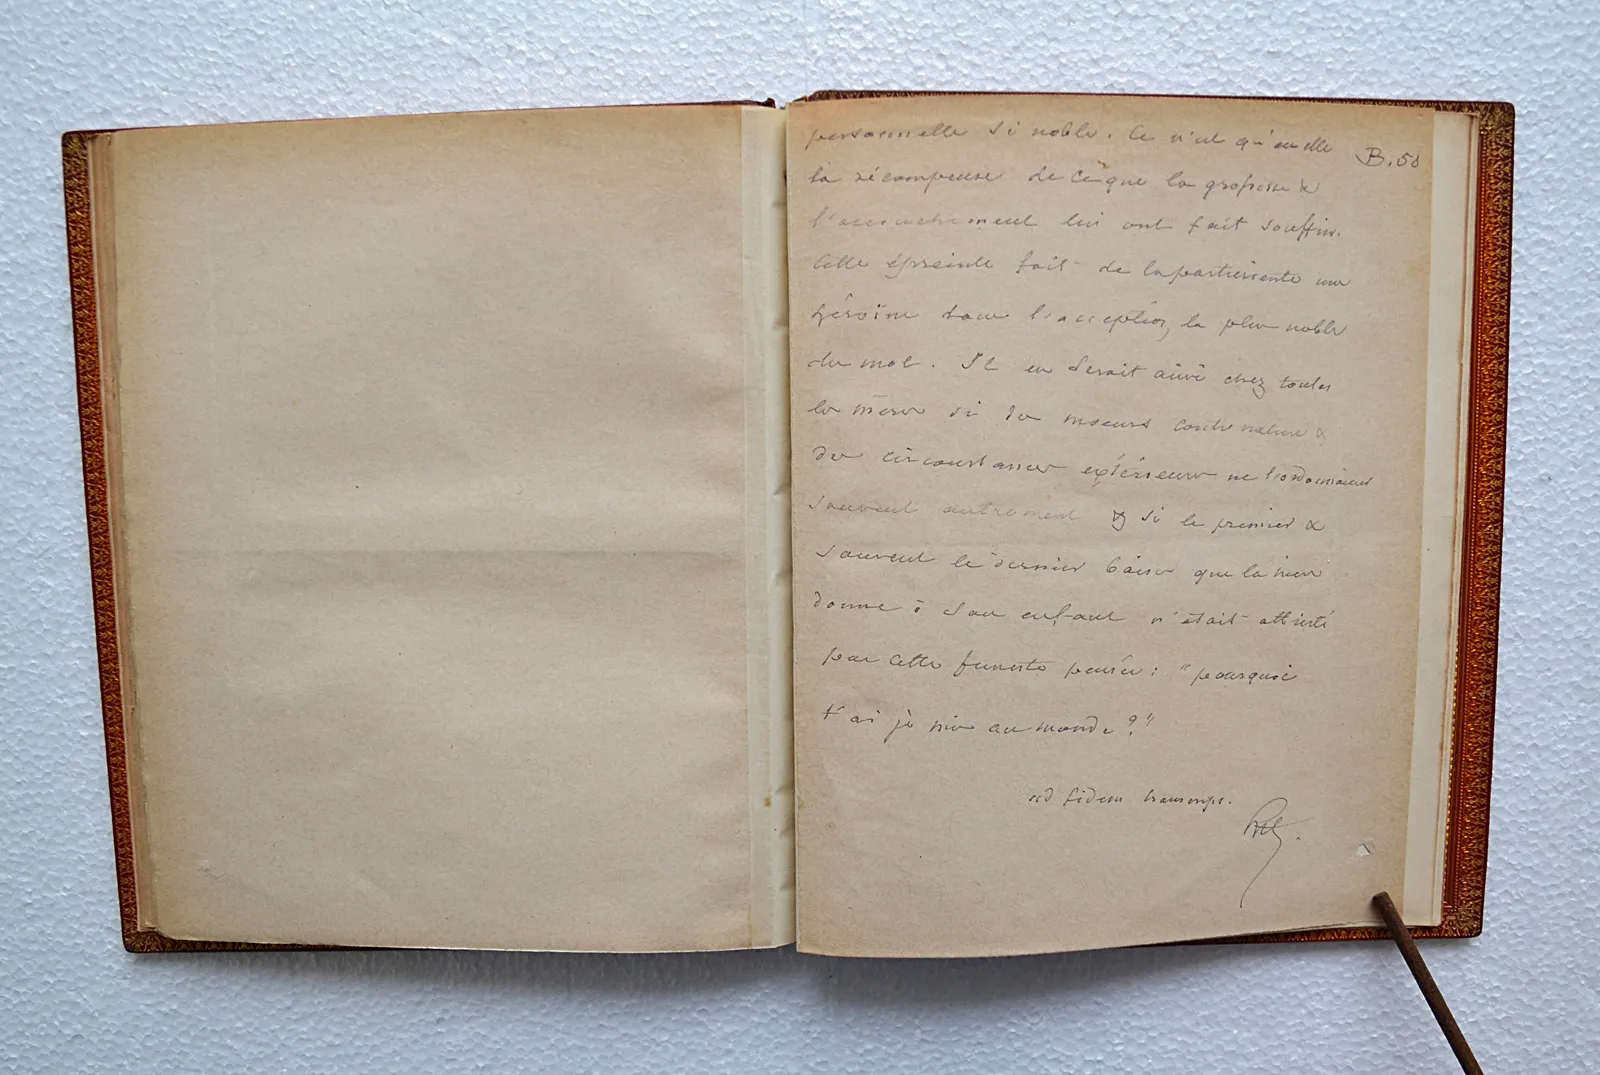 personnelle si noble. Ce n'est qu'en elle
B.50
la récompense de ce que la grossesse &
l'accouchement lui ont fait souffrir.
Cette épreinte fait de la parturiente une
héroïne dans l'acception la plus noble
du mot. Il en serait ainsi chez toutes
les mères si des moeurs contre nature &
des circonstances extérieures ne l'ordonnaient
souvent autrement & si le premier &
souvent le dernier baiser que la mère
donne à son enfant n'était attristé
par cette funeste pensée : "pourquoi
t'ai je mis au monde ?"
ad fidem transcrips.